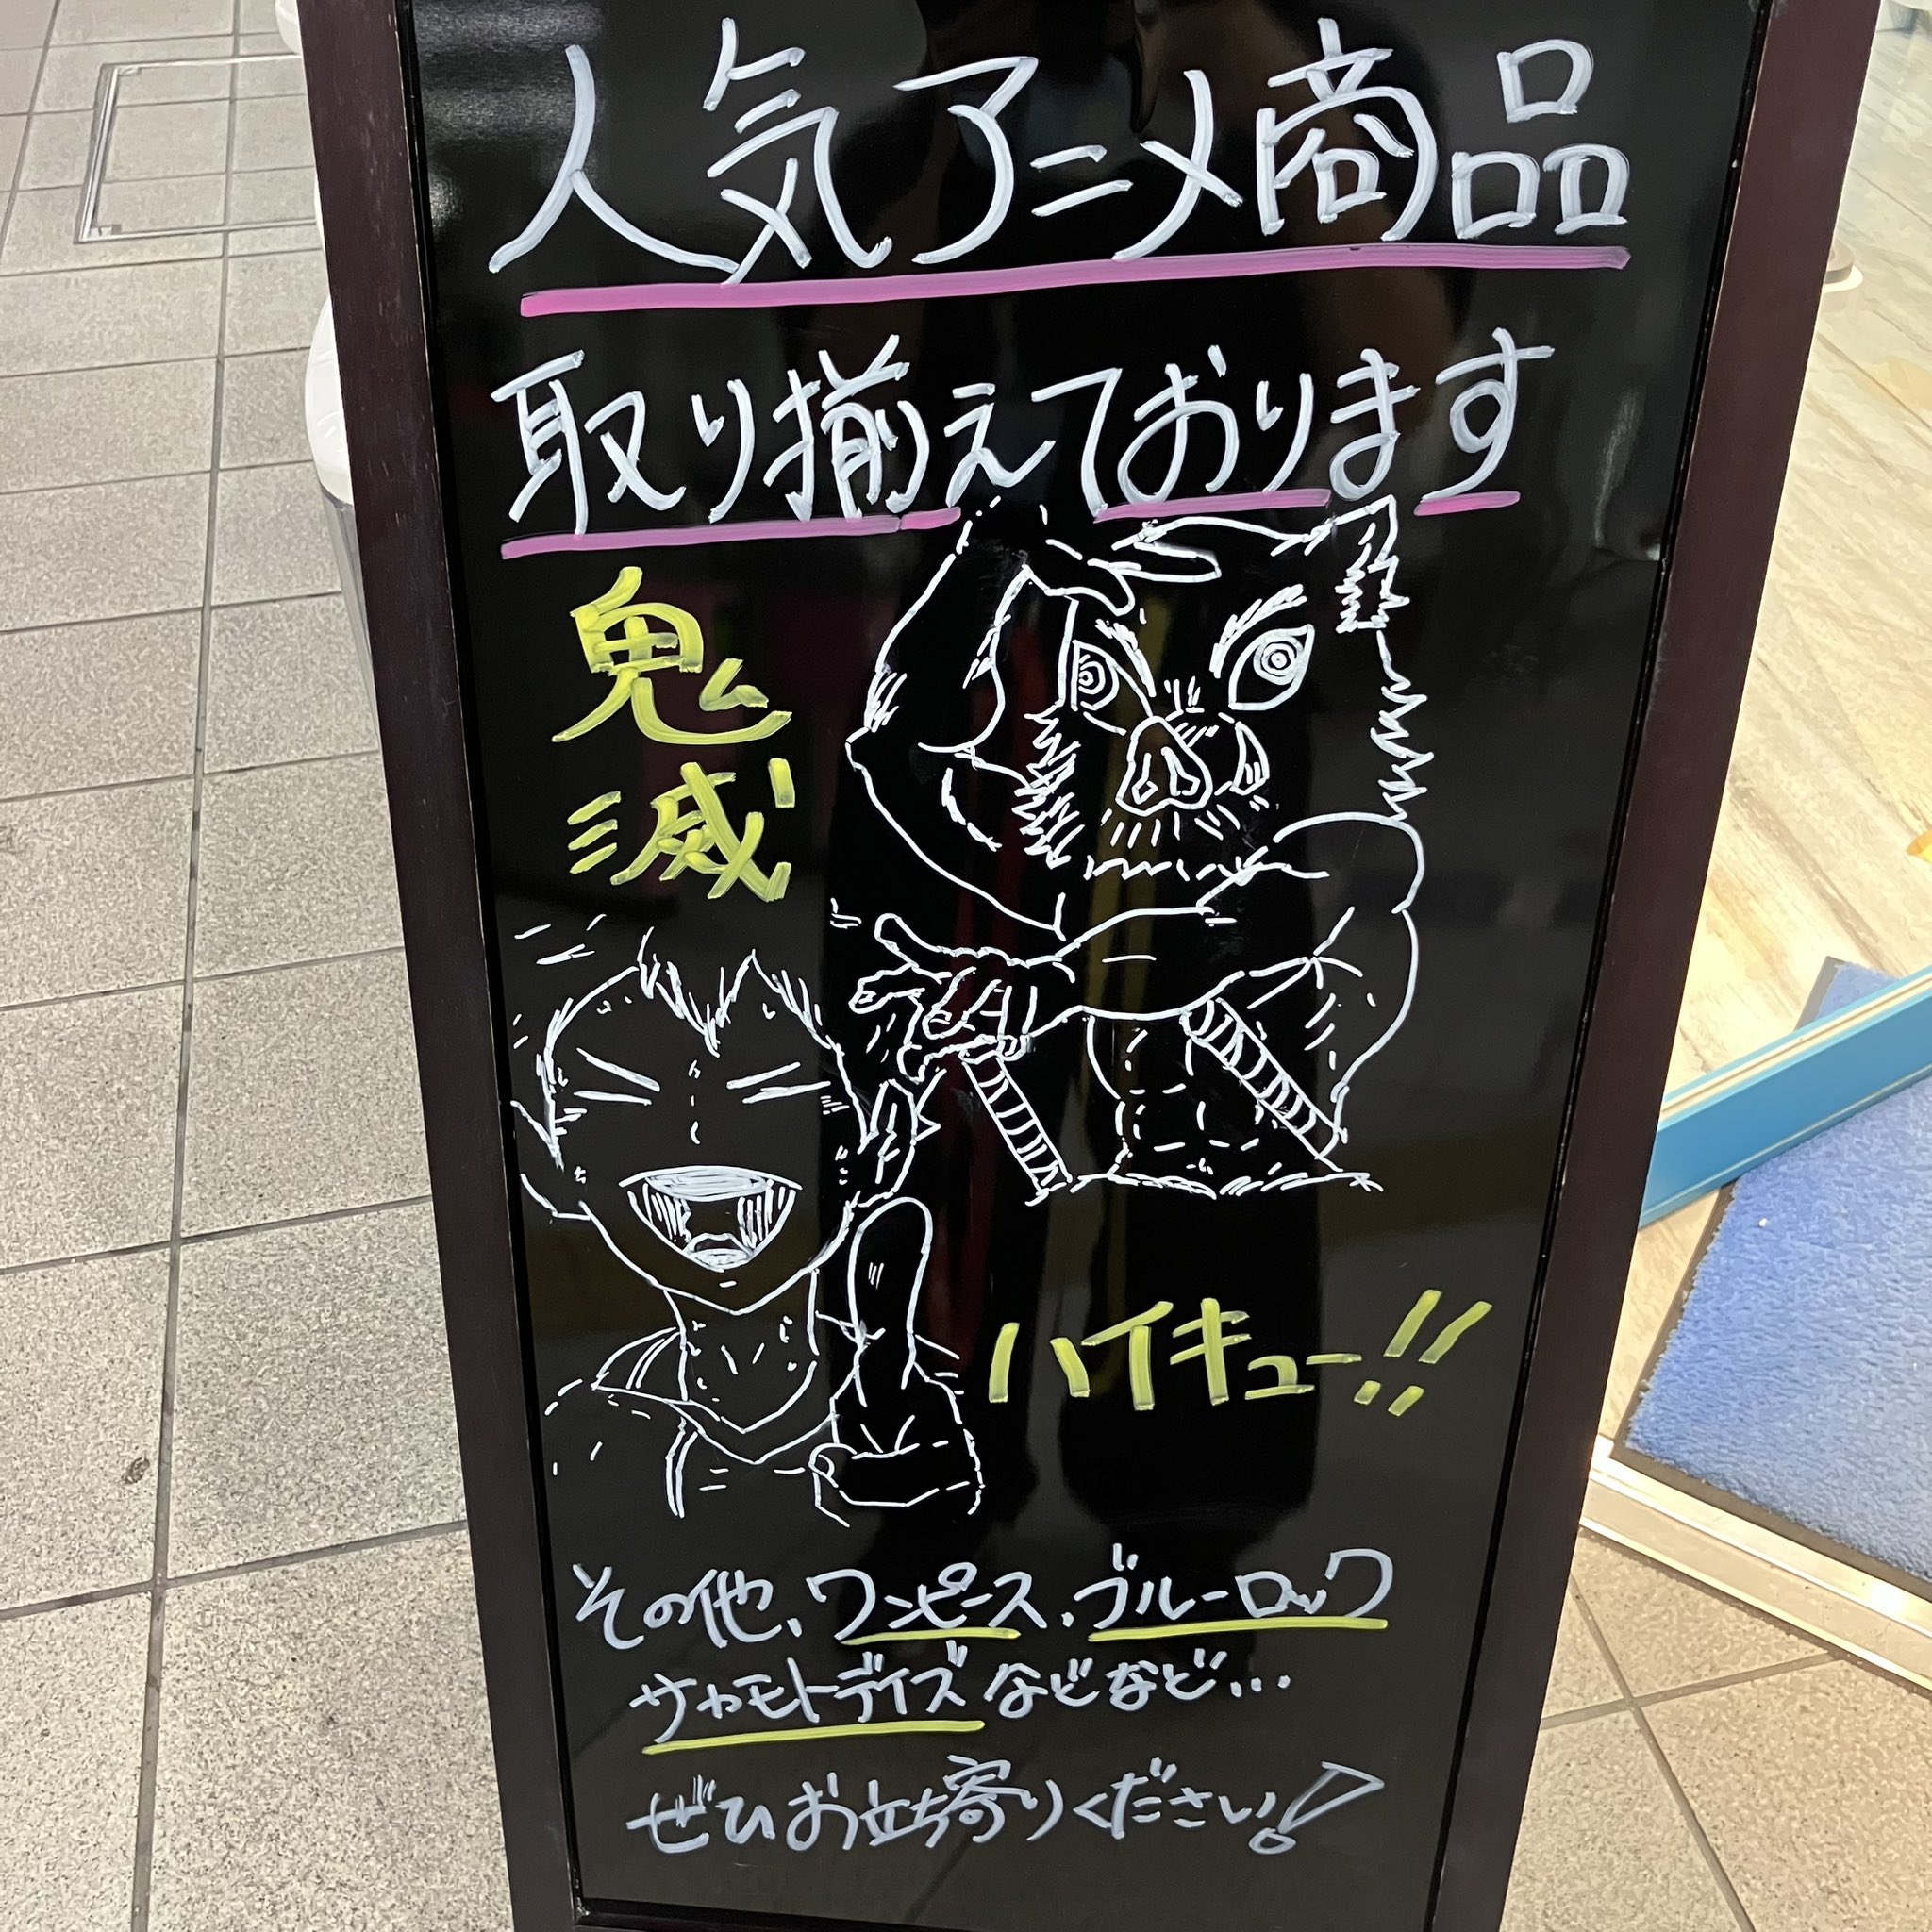 人気アニメ商品
取り揃えております
鬼滅
ハイキュー!!
その他、ワンピース、ブルーロック
サカモトデイズなどなど...
ぜひお立ち寄りください!